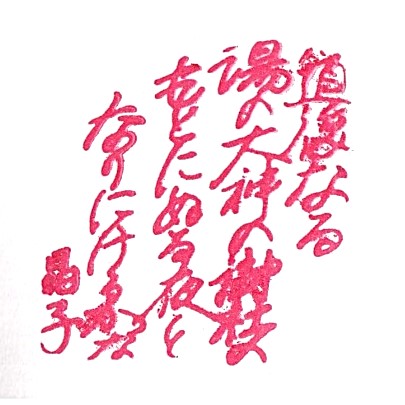 道後なる
湯の大神の御社の
もとにぬる夜と
なりにけるかな
晶子